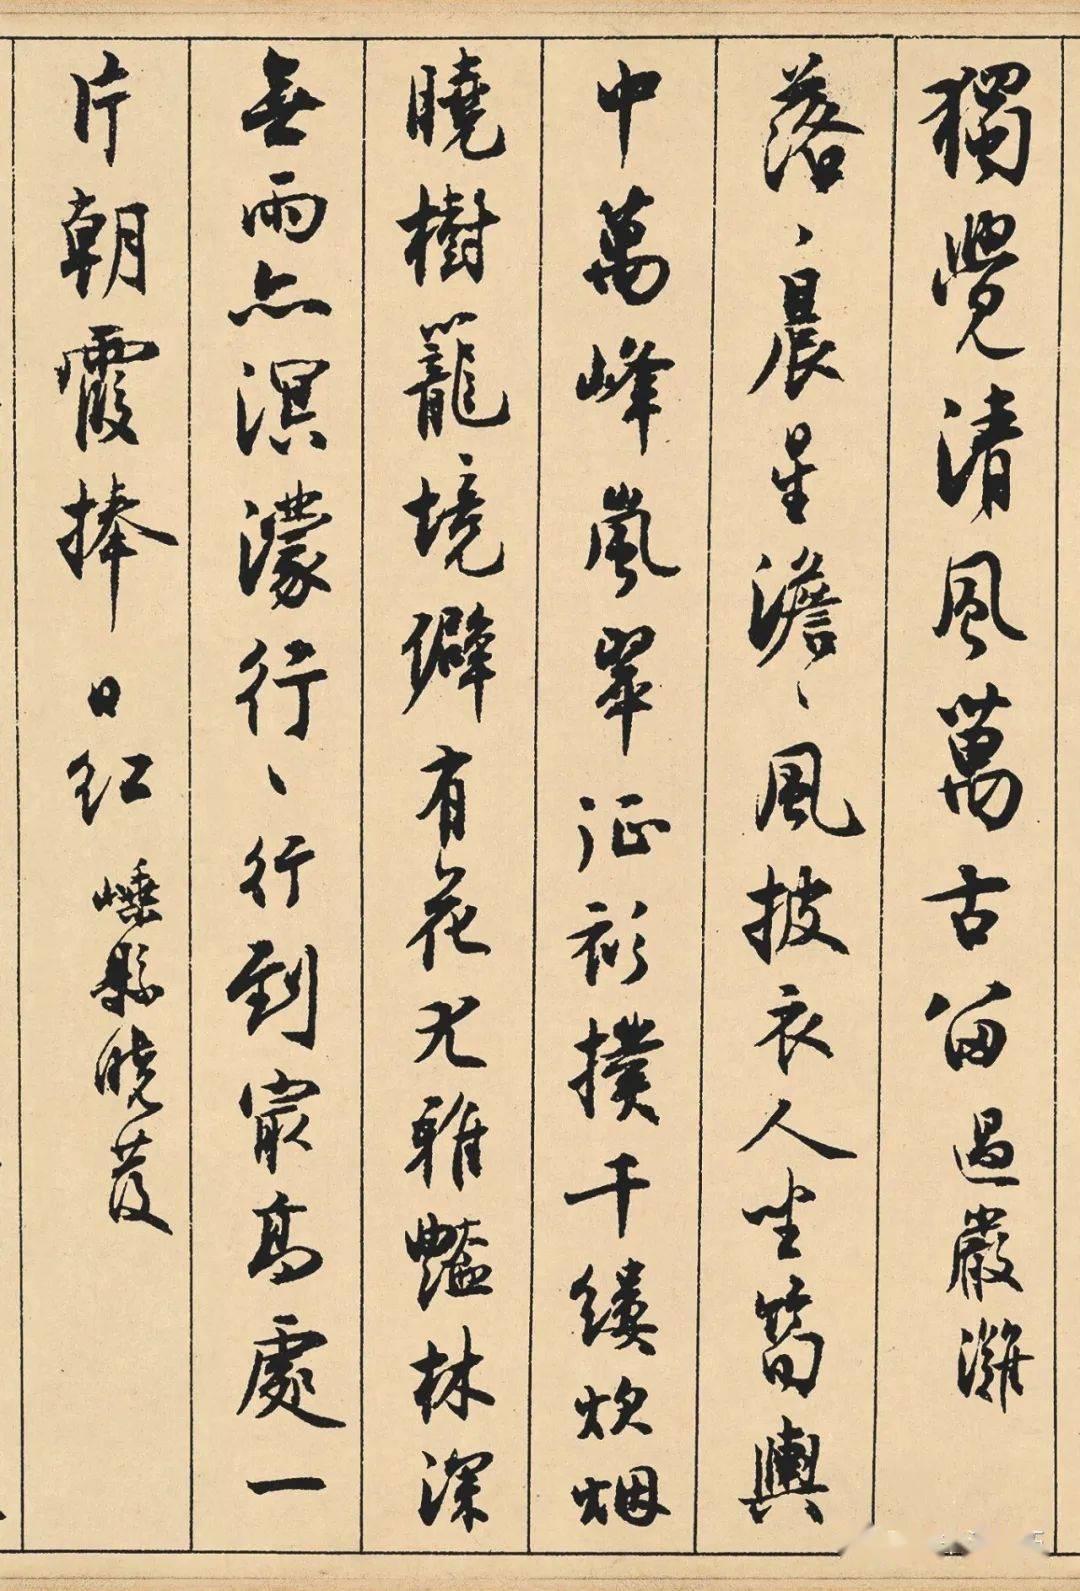 獨覺清風萬古留 過嚴灘
落、晨星澹、風披衣人坐筍輿
中萬峰嵐翠征衫撲千縷炊烟
曉樹籠境僻有花尤雅豔林深
無雨亦溟濛行、行到最高處一
片朝霞捧日紅 嵊縣曉發